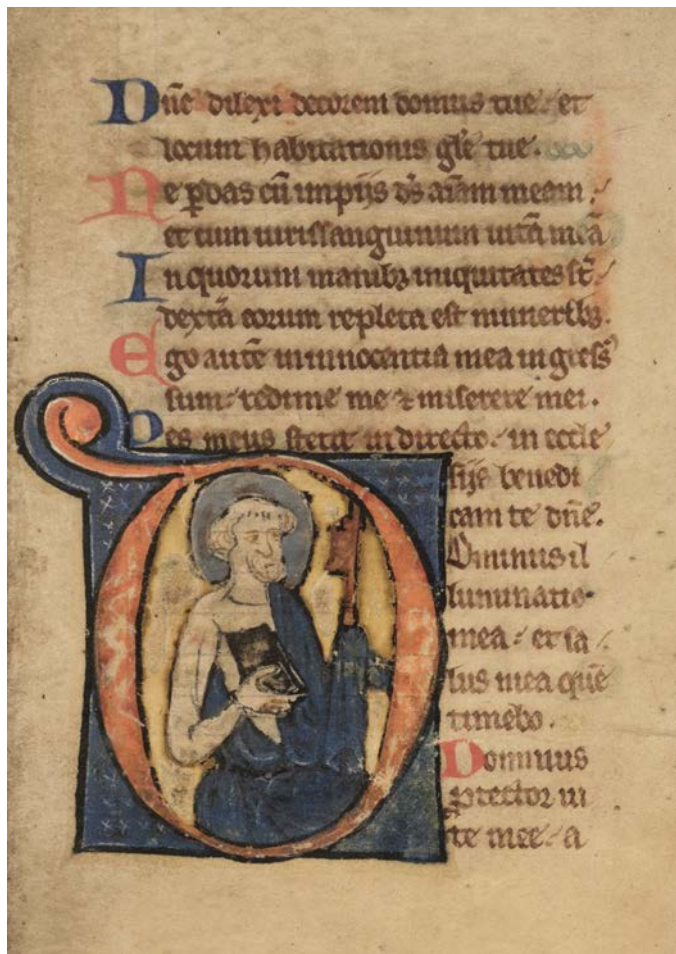 Dñe dilexi decorem domus tue. et
locum habitationis glẽ tue.
Ne ꝑdas cũ impijs dš aĩam meam.
et cum uiris sanguinum uitã meã
In quorum manibꝫ iniquitates sť.
dextã eorum repleta est muneribꝫ.
Ego autẽ in innocentia mea ingress᷒
sum. redime me ⁊ miserere mei.
Pes meus stetit in directo. in eccle
sijs benedi
cam te dñe.
Dominus il
luminatio
mea. et sa
lus mea quẽ
timebo.
Dominus
ꝓtector ui
te mee. a